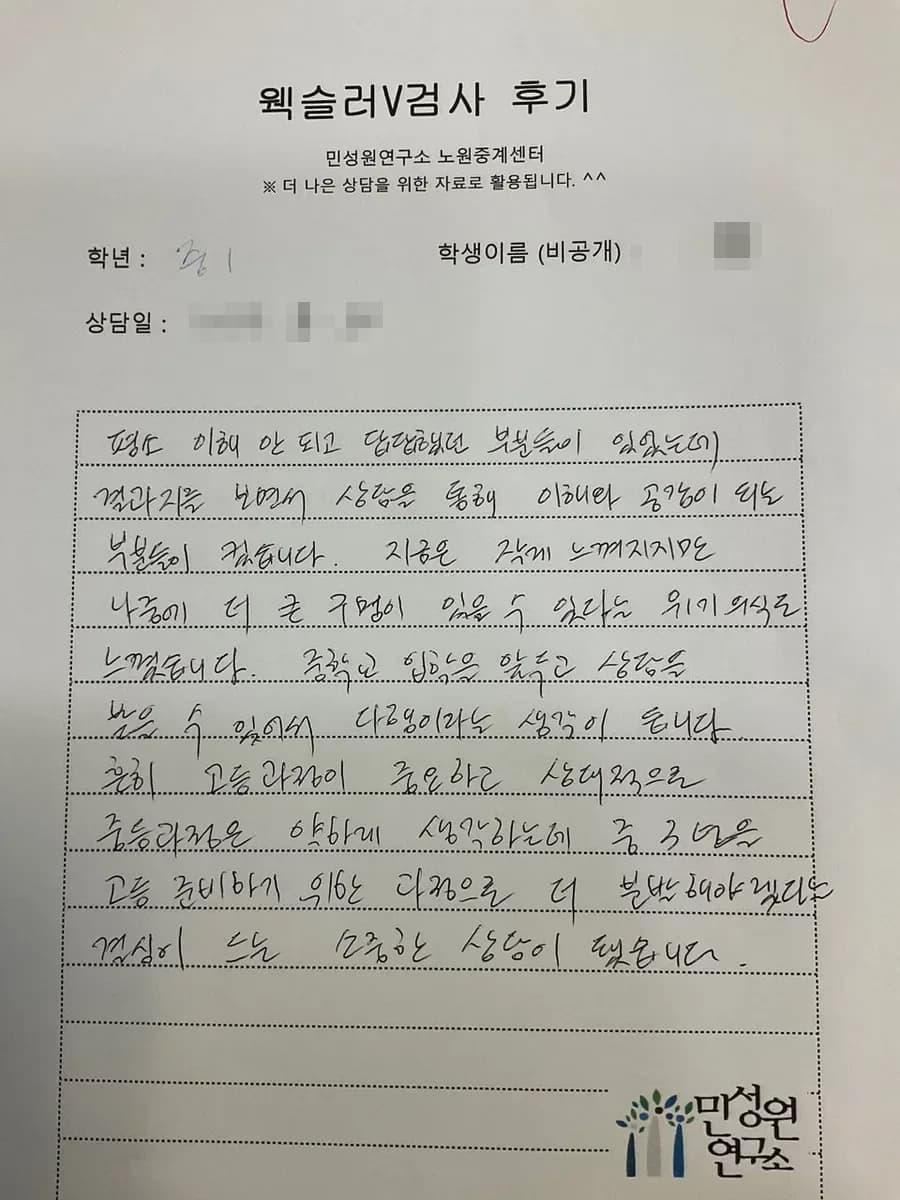 웩슬러V검사 후기
민성원연구소 노원중계센터
※ 더 나은 상담을 위한 자료로 활용됩니다. ^^
학년 : 중 1
학생이름 (비공개)
상담일 :
평소 이해 안 되고 답답했던 부분들이 있었는데
결과지를 보면서 상담을 통해 이해와 공감이 되는
부분들이 컸습니다. 지금은 작게 느껴지지만
나중에 더 큰 구멍이 있을 수 있다는 위기의식도
느꼈습니다. 중학교 입학을 앞두고 상담을
받을 수 있어서 다행이라는 생각이 듭니다.
흔히 고등과정이 중요하고 상대적으로
중등과정은 약하게 생각하는데 중 3년을
고등 준비하기 위한 과정으로 더 분발해야겠다는
결심이 드는 소중한 상담이 됐습니다.
민성원
연구소